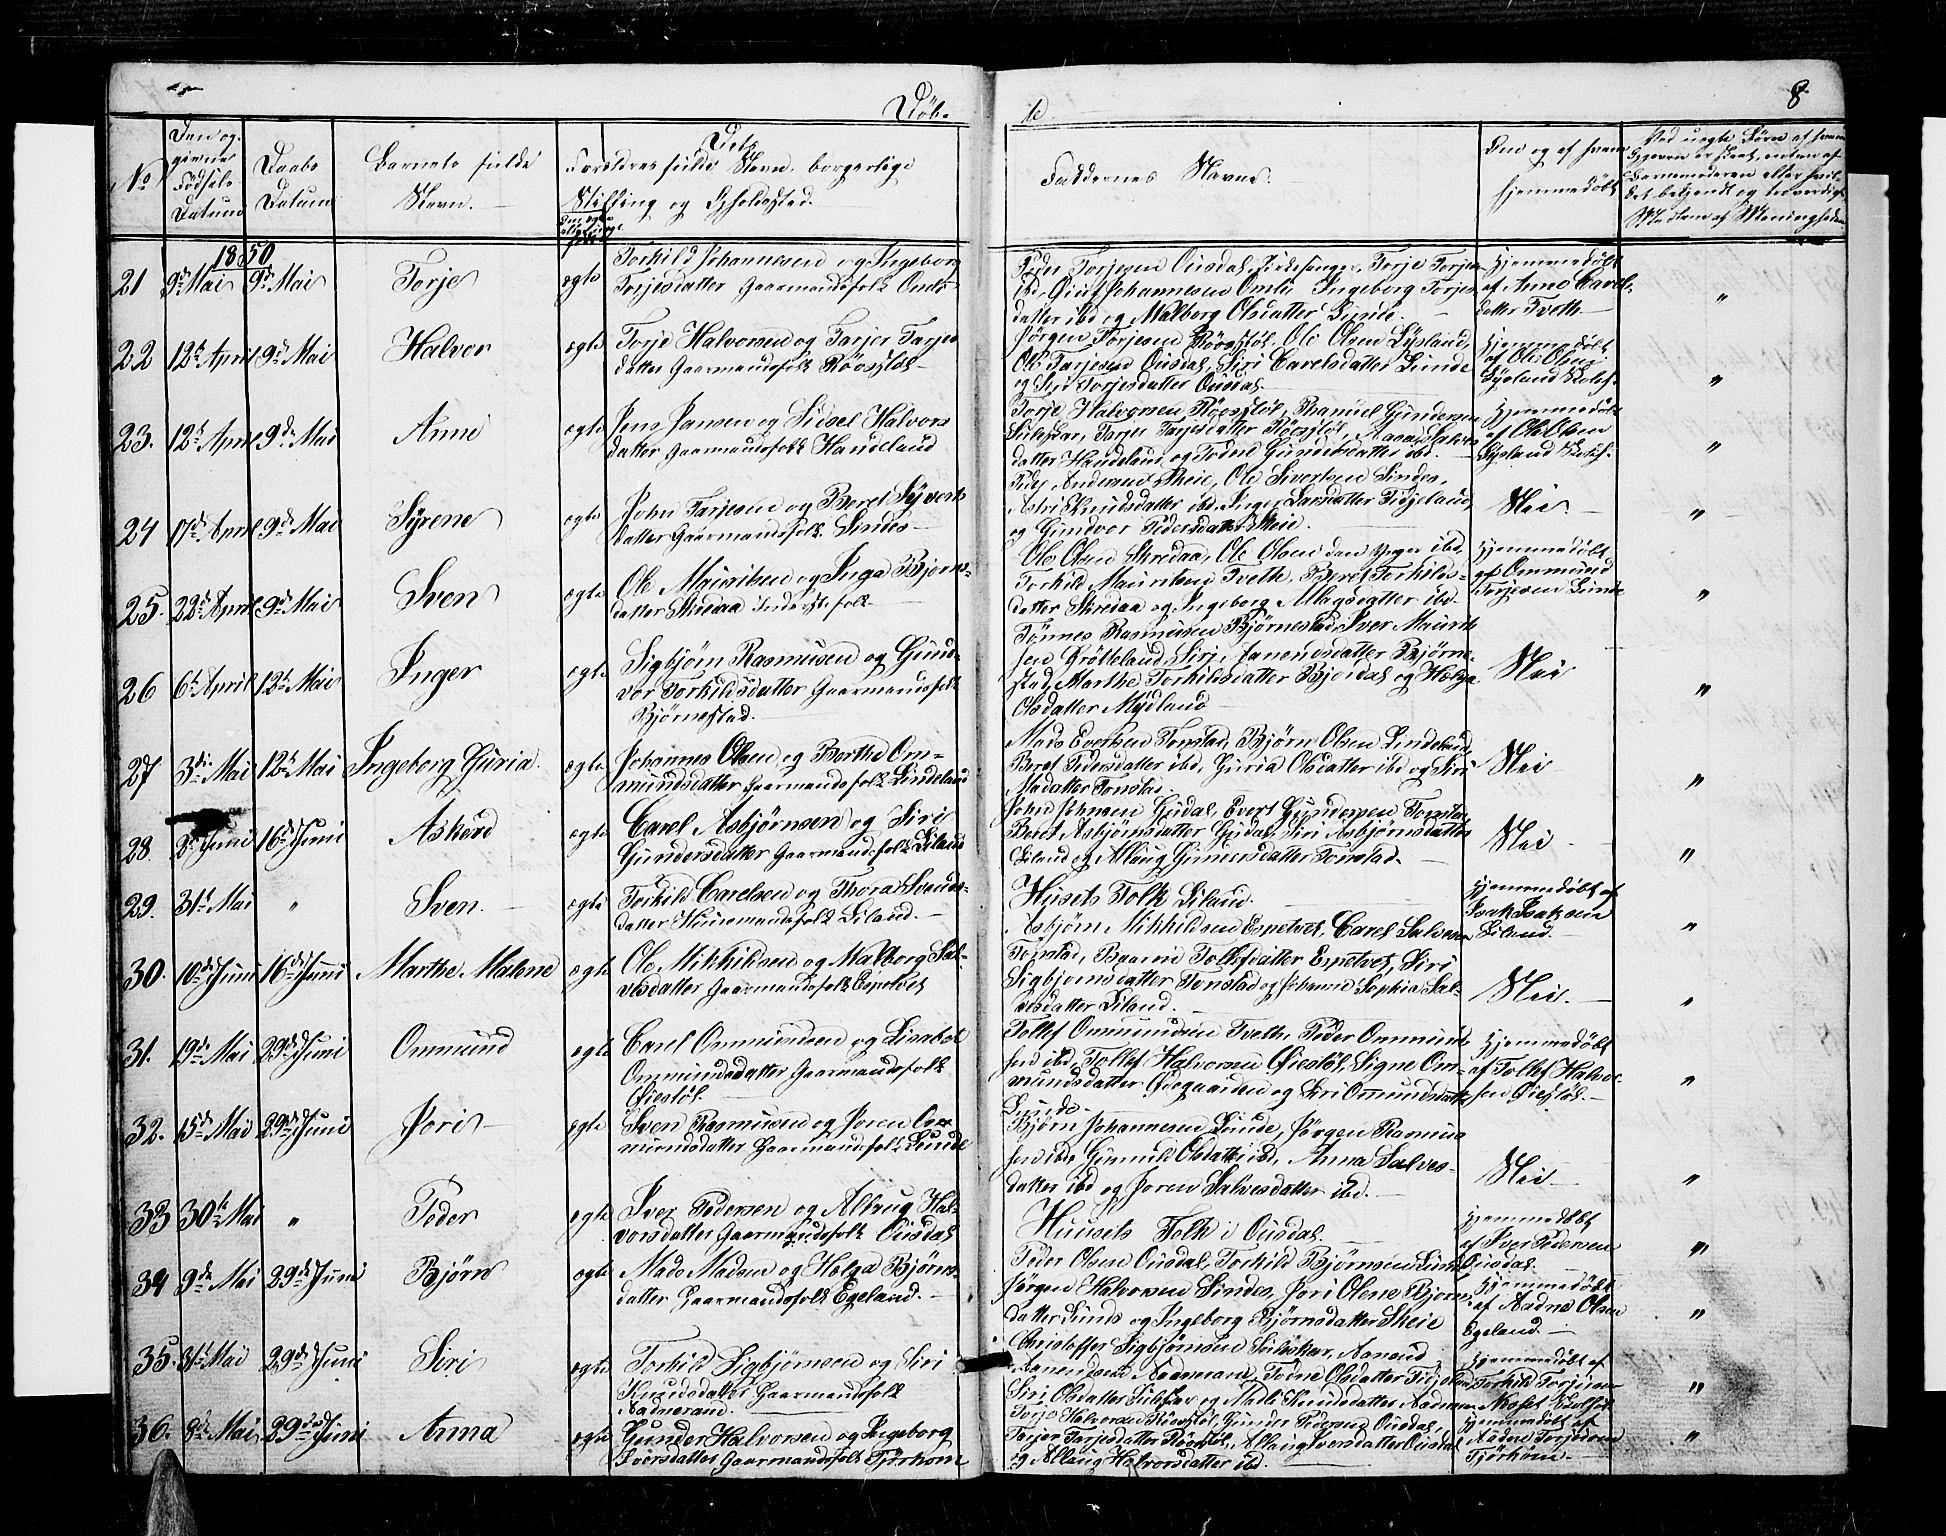 Døb-
te
8
No
Den og-
givne
Fødsels
Datum
Daabs
Datum
Barnets fulde
Navn.
Dets
Forældres fulde Navn, borgerlige
Stilling og Opholdssted.
Faddernes Navne.
Om og af hvem
hjemmedøbt
1850
21 9de Mai 9de Mai Torje ægte
Torkild Johannesen og Ingeborg
Torjesdatter Gaarmandsfolk Omli
Peder Torjesen Ousdal, Kirkesanger, Torje Torjesen
ibd, Johannesen Omli Ingeborg Torjes-
datter ibd og Malborg Olsdatter Lunde.
Hjemmedøbt
af Anne Carels-
datter Tveth
"
22 12te April 9de Mai Halvor ægte
Torje Halvorsen og Tarjer Tarjes
datter Gaarmandsfolk Røosstøl
Jørgen Torjesen Røosstøl, Ole Olsen Sysland,
Ole Tarjesen Ousdal, Siri Carelsdatter Lunde
og Siri Torjesdatter Ousdal
Hjemmedøbt
af Ole Olsen
Sysland
"
23. 12te April 9de Mai Anne ægte
Jens Jansen og Sidsel Halvors
datter Gaarmandsfolk Haudeland
Torje Halvorsen Røosstøl, Thamuel Gundersen
Suleskar, Tarjer Tarjesdatter Røosstøl, Salves
datter Haudeland og Todne Gundersdatter ibd.
Hjemmedøbt
af Ole Olsen
Sysland
"
24 17de April 9de Mai Syrene ægte
John Tarjesen og Beret Syverts
datter Gaarmandsfolk Sindes
Peder Andersen Skeie, Ole Sivertsen Sindes,
Astri Knudsdatter ibd, Inger Larsdatter Fidjeland
og Gundvor Pedersdatter Skeie.
Nei.
"
25. 22de April 9de Mai Sven ægte
Ole Mauritsen og Inga Bjørns-
datter Skredaa Inderstefolk
Ole Olsen Skredaa, Ole Olsen den yngre ibd,
Torkild Mauritsen Tveth, Beret Torkilds-
datter Skredaa og Ingeborg Allagsdatter ibd.
Hjemmedøbt
af Ommund
Torjesen Lunde
"
26 6te April 12te Mai Inger ægte
Sigbjørn Rasmusen og Gund-
vor Torkildsdatter Gaarmandsfolk
Bjørnestad.
Tønnes Rasmusen Bjørnestad, Iver Maurit
sen Grøtteland, Siri datter Bjørne-
stad, Marthe Torkildsdatter Bjordal og Helga
Olsdatter Mydland
Nei
"
27 3die Mai 12te Mai Ingeborg Guria. ægte
Johannes Olsen og Berthe Om-
mundsdatter Gaarmandsfolk Lindeland
Mads Evertsen Tonstad, Bjørn Olsen Lindeland,
Beret Pedersdatter ibd, Guria Olsdatter ibd og Siri
Madsdatter Tonstad.
Nei
"
28 Juni 16de Juni Askerd ægte
Carel Asbjørnsen og Siri
Gundersdatter Gaarmandsfolk Liland
John Johnsen Gudal, Evert Gundersen Tonstad,
Beret Asbjørnsdatter Gudal, Siri Asbjørnsdatter
Liland og Allaug Gundersdatter Tonstad.
Nei
"
29. 31te Mai " Sven. ægte
Torkild Carelsen og Thora Svends-
datter Huusmandsfolk Liland.
Husets Folk Liland.
Hjemmedøbt af
Isak Isaksen
Liland
"
30. 10de Juni 16de Juni Marthe Malene ægte
Ole Mikkildsen og Malborg Sal-
vesdatter Gaarmandsfolk Espetvet
Asbjørn Mikkildsen Espetvet, Carel Salvesen
Tonstad, Tollefsdatter Espetvet, Siri
Sigbjørnsdatter Tonstad og Johanne Sophia Sal-
vesdatter Liland.
Nei.
"
31. 19de Mai 29de Juni Ommund ægte
Carel Ommundsen og Lisabet
Ommundsdatter Gaarmandsfolk
Øiestøl.
Tollef Ommundsen Tveth, Peder Ommund-
sen ibd, Tollef Halvorsen Øiestøl, Signe Om-
mundsdatter Øiegaarden og Siri Ommundsdatter
Lunde.
Hjemmedøbt
af Tollef Halvor-
sen Øiestøl.
"
32. 15de Mai 29de Juni Jori ægte
Sven Rasmusen og Joren Om-
mundsdatter Gaarmandsfolk Lunde
Bjørn Johannesen Lunde, Jørgen Rasmus
sen ibd, Gunnuld Olsdatter ibd, Anna Salves-
datter ibd og Joren Salvesdatter ibd.
Nei
"
33 30te Mai " Peder ægte
Iver Pedersen og Allaug Hal-
vorsdatter Gaarmandsfolk Ousdal
Huusets Folk i Ousdal.
Hjemmedøbt
af Iver Pedersen
Ousdal.
"
34 9de Mai 29de Juni Bjørn ægte
Mads Madsen og Helga Bjørns-
datter Gaarmandsfolk Egeland.
Peder Olsen Ousdal, Torkild Bjørnsen Lunde
Jørgen Halvorsen Sindes, Jori Olene Bjørns
datter Lunde og Ingeborg Bjørnsdatter Skeie
Hjemmedøbt
af Aadne Olsen
Egeland.
"
35. 31te Mai 29de Juni Siri ægte
Torkild Sigbjørnsen og Siri
Knudsdatter Gaarmandsfolk
Aadneram.
Christoffer Sigbjørnsen Suleskar, Aanund
Aanundsen Aadneram, Todne Olsdatter Fidjeland,
Siri Olsdatter Suleskar og Malli Knudsdatter Aadneram
Hjemmedøbt af
Torkild Torjusen
"
36. Mai 29de Juni Anna ægte
Gunder Halvorsen og Ingeborg
Iversdatter Gaarmandsfolk Tjørhom
Torje Halvorsen Røosstøl, Gunder Pedersen Ousdal,
Tarjer Tarjesdatter Røosstøl, Allaug Iversdatter Ousdal
og Allaug Halvorsdatter ibd.
Hjemmedøbt af
Aadne Torjesen
Tjørhom
"